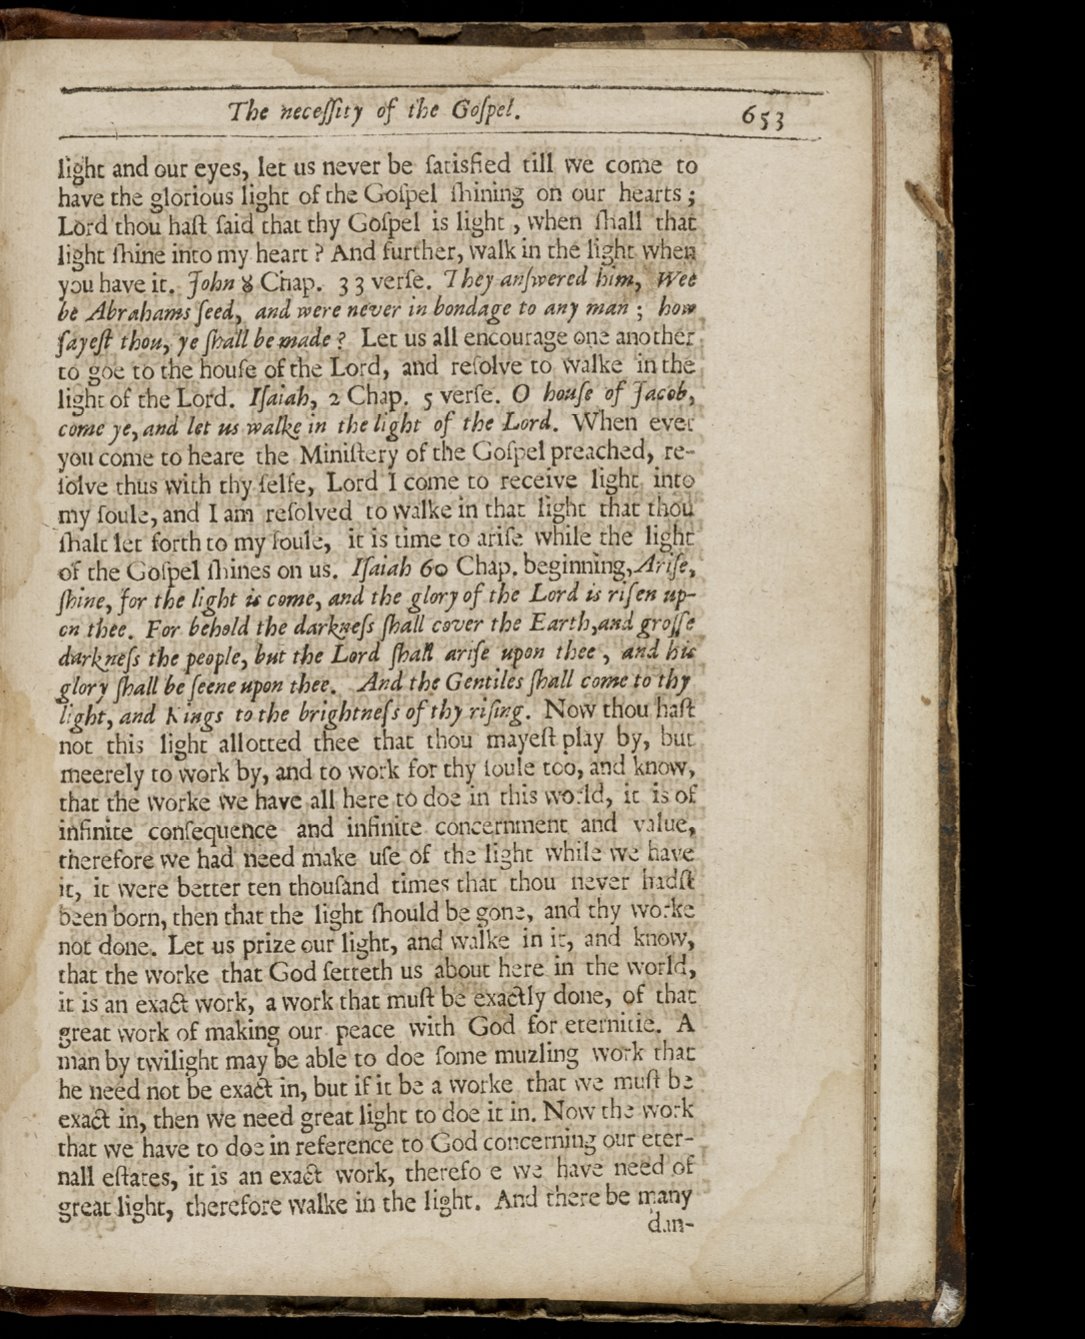 The neceſſity of the Goſpel. 653
light and our eyes, let us never be ſatisfied till we come to
have the glorious light of the Goſpel ſhining on our hearts;
Lord thou haſt ſaid that thy Goſpel is light, when ſhall that
light ſhine into my heart? And further, walk in the light when
you have it. John 8 Chap. 33 verſe. They anſwered him, Wee
be Abrahams ſeed, and were never in bondage to any man; how
ſayeſt thou, ye ſhall be made? Let us all encourage one another
to goe to the houſe of the Lord, and reſolve to walke in the
light of the Lord. Iſaiah, 2 Chap. 5 verſe. O houſe of Jacob,
come ye, and let us walke in the light of the Lord. When ever
you come to heare the Miniſtery of the Goſpel preached, re-
ſolve thus with thy ſelfe, Lord I come to receive light into
my ſoule, and I am reſolved to walke in that light that thou
ſhalt let forth to my ſoule, it is time to ariſe while the light
of the Goſpel ſhines on us. Iſaiah 60 Chap. beginning, Ariſe,
ſhine, for the light is come, and the glory of the Lord is riſen up-
on thee. For behold the darkneſs ſhall cover the Earth, and groſſe
darkneſs the people, but the Lord ſhall ariſe upon thee, and his
glory ſhall be ſeene upon thee. And the Gentiles ſhall come to thy
light, and Kings to the brightneſs of thy riſing. Now thou haſt
not this light allotted thee that thou mayeſt play by, but
meerely to work by, and to work for thy ſoule too, and know,
that the worke we have all here to doe in this world, it is of
infinite conſequence and infinite concernment and value,
therefore we had need make uſe of the light while we have
it, it were better ten thouſand times that thou never hadſt
been born, then that the light ſhould be gone, and thy worke
not done. Let us prize our light, and walke in it, and know,
that the worke that God ſetteth us about here in the world,
it is an exact work, a work that muſt be exactly done, of that
great work of making our peace with God for eternitie. A
man by twilight may be able to doe ſome muzling work that
he need not be exact in, but if it be a worke that we muſt be
exact in, then we need great light to doe it in. Now the work
that we have to doe in reference to God concerning our eter-
nall eſtates, it is an exact work, therefo e we have need of
great light, therefore walke in the light. And there be many
dan-